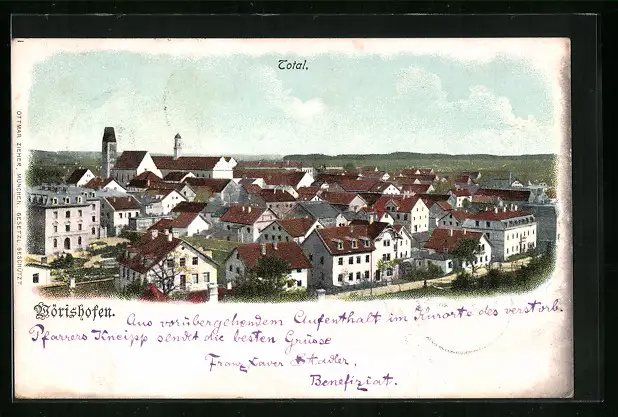 Total.
OTTMAR ZIEHER, MÜNCHEN. GESETZL. GESCHÜTZT.
Wörishofen.
Aus vorübergehendem Aufenthalt im Kurorte des verstorb.
Pfarrers Kneipp sendet die besten Grüsse
Franz Xaver Stadler,
Benefiziat.